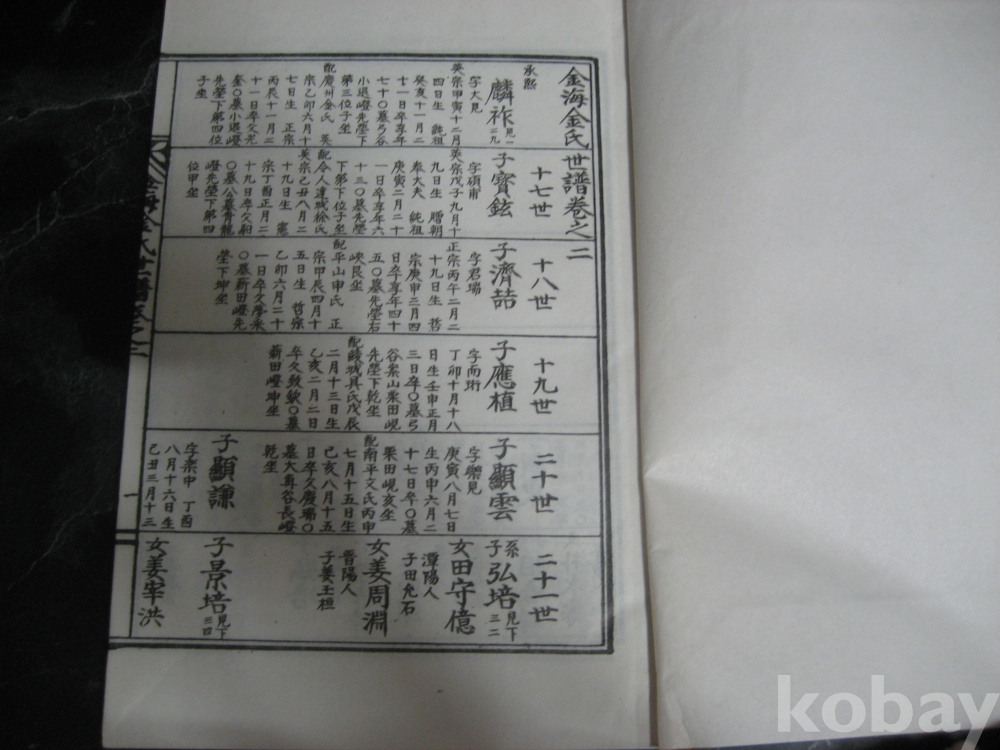 金海金氏世譜卷之二
承熙
麟祚 見一二九
字大見
英宗甲寅十二月
四日生 純祖
癸亥十一月二
十一日卒享年
七十〇墓弓谷
小退嶝先塋下
第三位子坐
配慶州金氏 英
宗乙卯六月十
七日生 正宗
丙辰十一月二
十一日卒父光
奎〇墓小退嶝
先塋下第四位
子坐
十七世
子寶鉉
字碩甫
英宗戊子九月十
九日生 贈朝
奉大夫 純祖
庚寅二月二十
一日卒享年六
十三〇墓先塋
下第下位子坐
配令人達城徐氏
英宗己丑八月二
十九日生 憲
宗丁酉正月二
十九日卒父
〇墓公墓靑龍
嶝先塋下第四
位甲坐
十八世
子濟喆
字君瑞
正宗丙午二月二
十九日生 哲
宗庚申三月四
日卒享年四十
五〇墓先塋右
峽艮坐
配平山申氏 正
宗甲辰四月十
五日生 哲宗
乙卯六月二十
一日卒父
〇墓新田嶝先
塋下坤坐
十九世
子應植
字而珩
丁卯十月十八
日生壬申正月
三日卒〇墓弓
谷案山栗田峴
先塋下乾坐
配綾城具氏戊辰
二月十三日生
乙亥二月二日
卒父致欽〇墓
薪田嶝坤坐
二十世
子顯雲
字樂見
庚寅八月七日
生丙申六月二
十七日卒〇墓
栗田峴亥坐
配南平文氏丙申
七月十五日生
己亥八月十五
日卒父慶瑞〇
墓大再谷長嶝
乾坐
子顯謙
字柰中 丁酉
八月十六日生
乙丑三月十三
二十一世
系子弘培 見下三二
女田守億
潭陽人
子田允石
女姜周淵
晋陽人
子姜玉桓
子景培 見下三四
女姜宰洪
金海金氏世譜卷之二
一
kobay